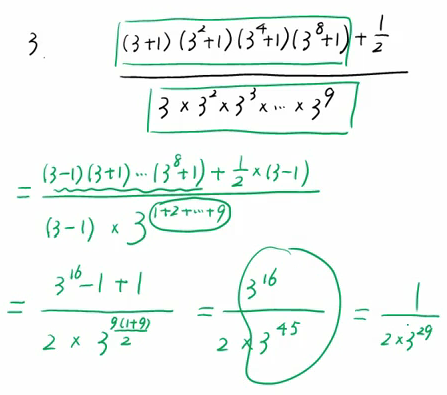 3. ((3+1)(3^2+1)(3^4+1)(3^8+1) + 1/2) / (3 × 3^2 × 3^3 × ... × 3^9)
= ((3-1)(3+1)...(3^8+1) + 1/2 × (3-1)) / ((3-1) × 3^(1+2+...+9))
= (3^16 - 1 + 1) / (2 × 3^(9(1+9)/2)) = 3^16 / (2 × 3^45) = 1 / (2 × 3^29)